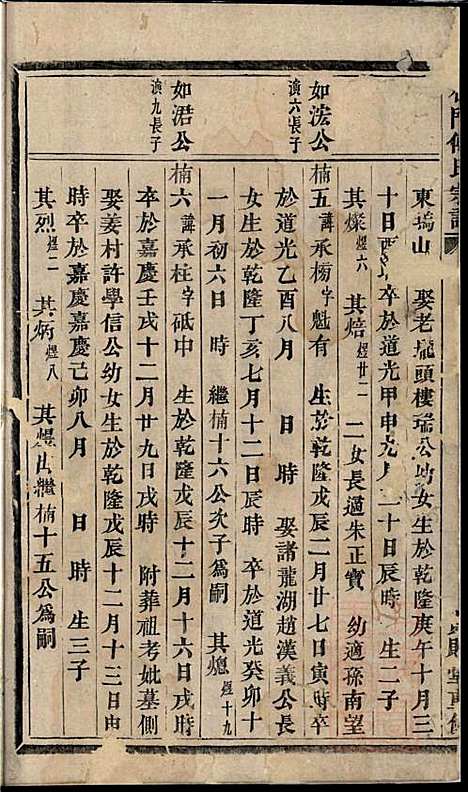 東塢山 娶老巃頭樓瑞公幼女生於乾隆庚午十月三
十日酉時 卒於道光甲申九月 十日辰時 生二子
其燦煜六 其焙煜廿二 二女長適朱正寶 幼適孫南望
如法公演六長子
楠五諱承椨字魁有 生於乾隆戊辰二月廿七日寅時卒
於道光乙酉八月 日 時 娶諸龍湖趙漢義公長
女生於乾隆丁亥七月十二日辰時 卒於道光癸卯十
一月初六日 時 繼楠十六公次子爲嗣 其熜煜十九
如涒公演九長子
楠六諱承柱字砥中 生於乾隆戊辰十二月十六日戌時
卒於嘉慶壬戌十二月廿九日戌時 附葬祖考妣墓側
娶姜村許學信公幼女生於乾隆戊辰十二月十三日由
時卒於嘉慶嘉慶己卯八月 日 時 生三子
其烈煜二 其炳煜八 其煜 出繼楠十五公爲嗣